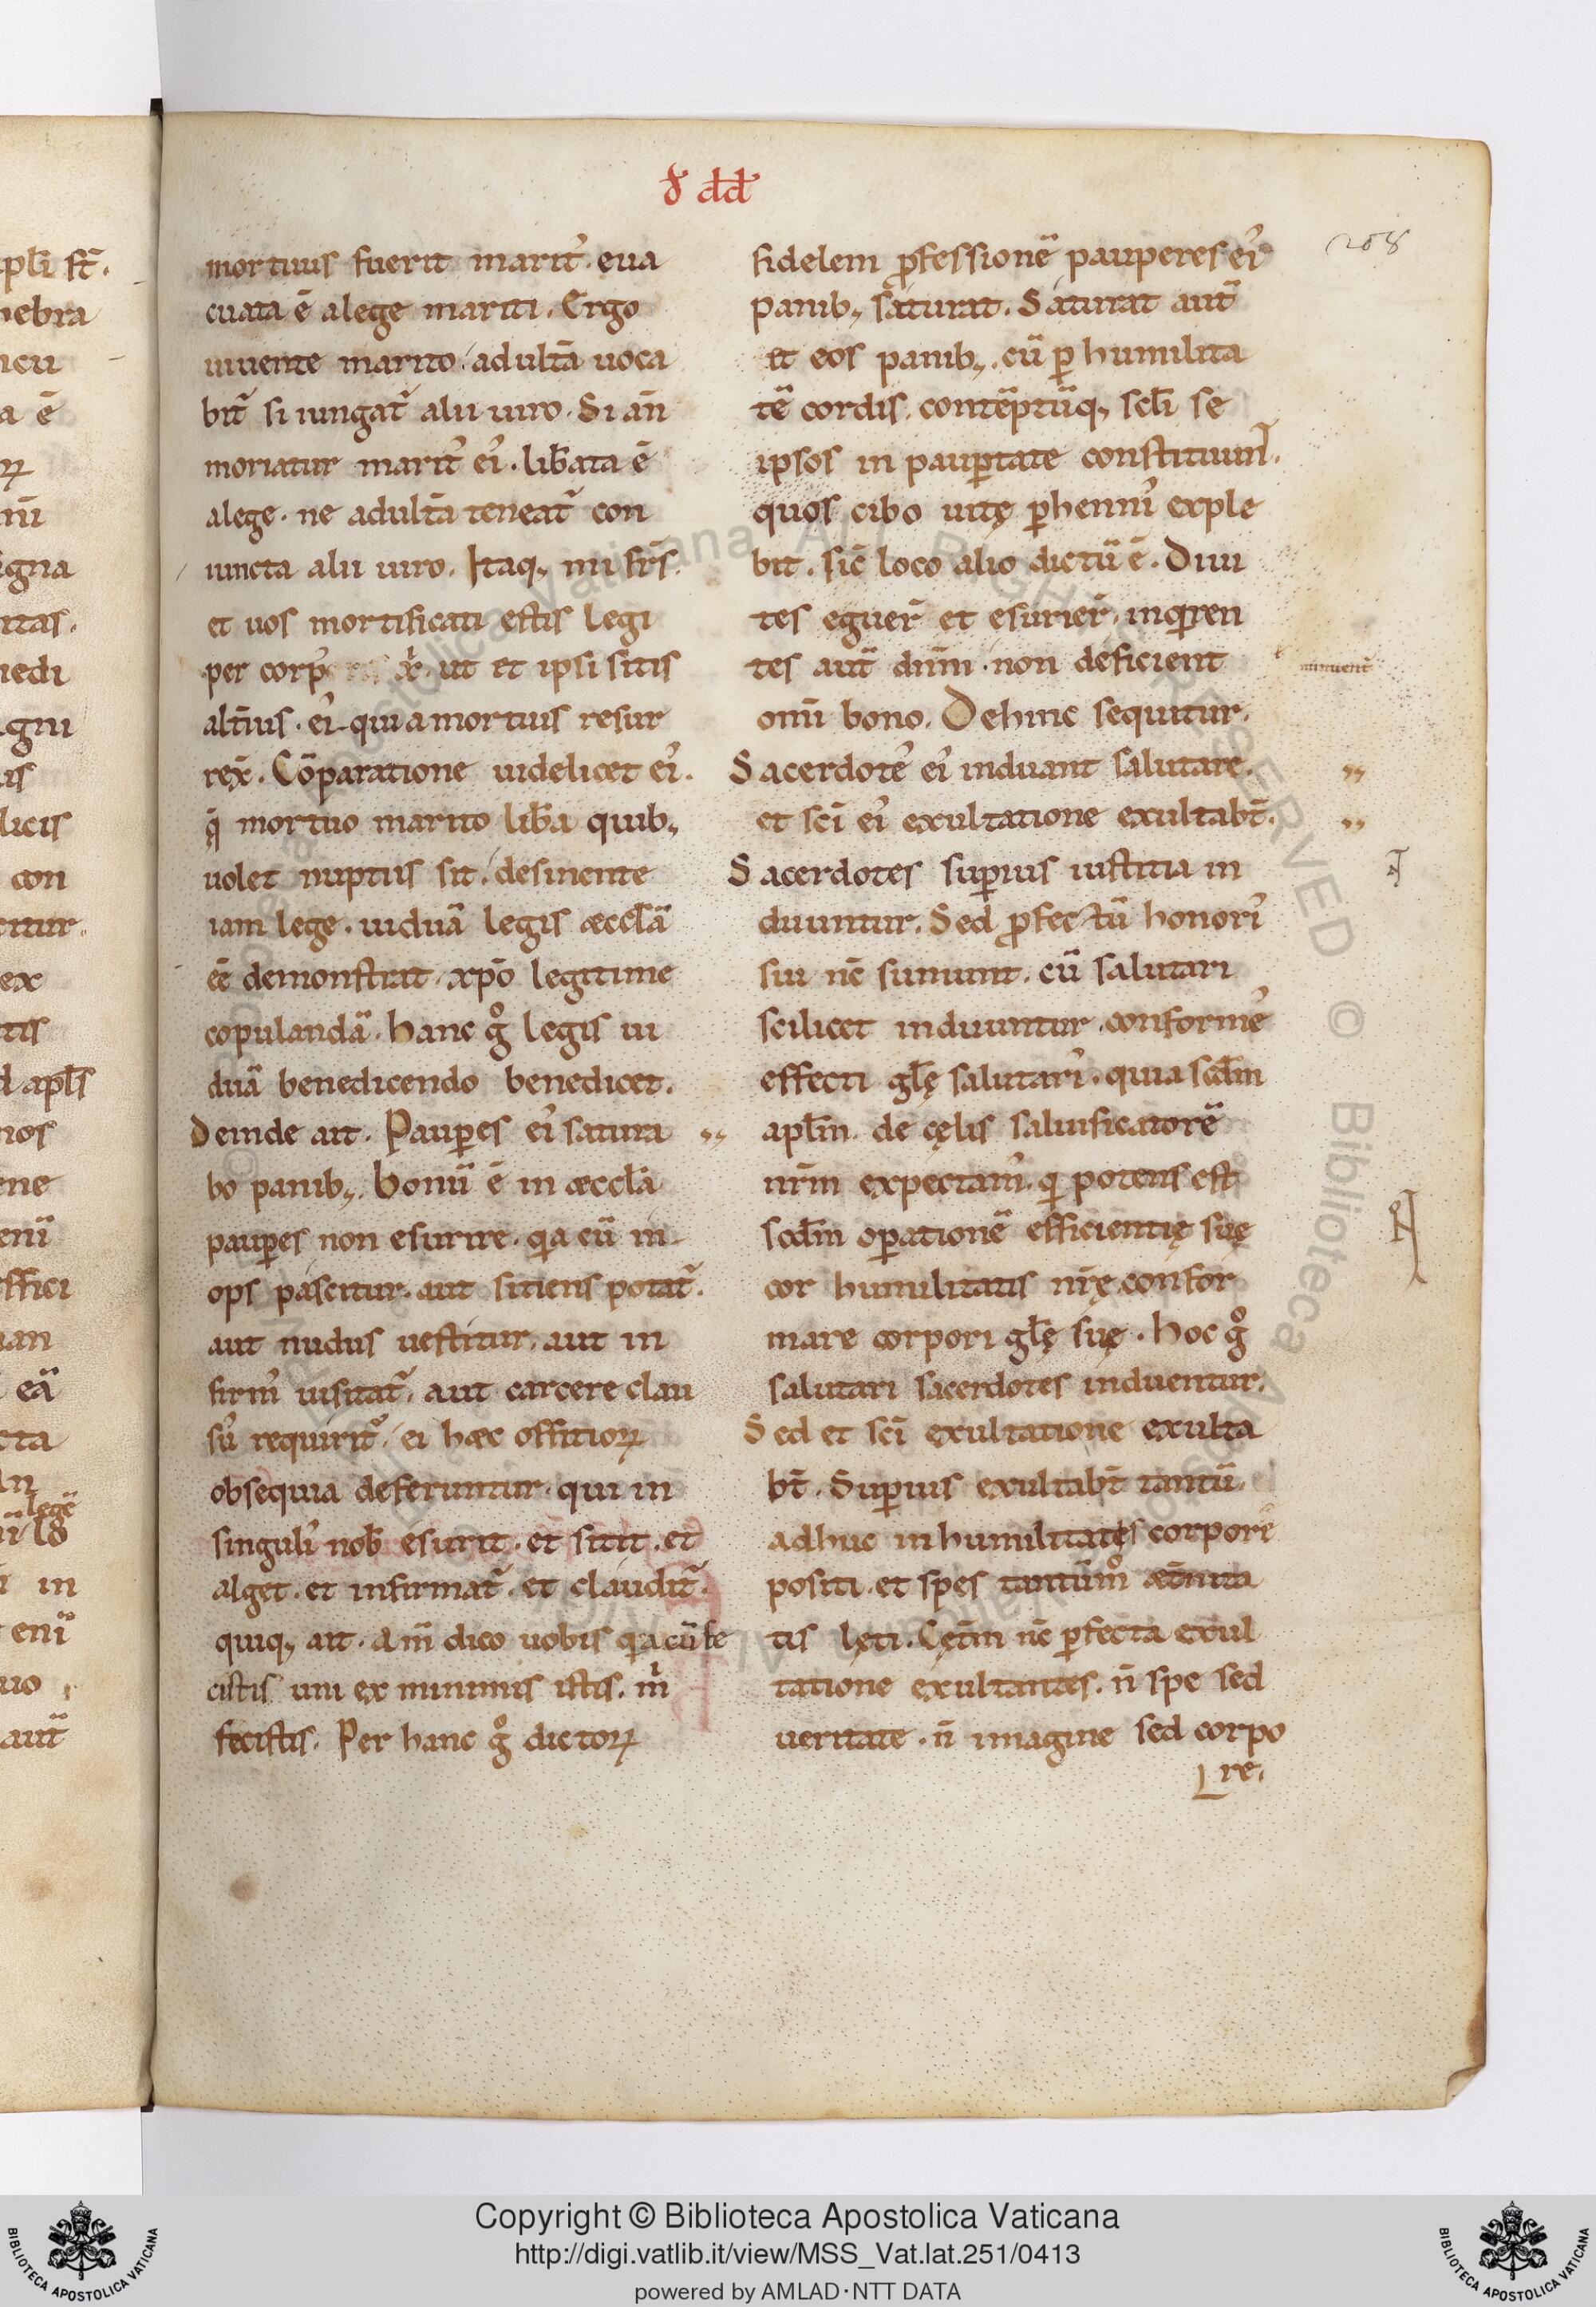 ɣ dd
208
mortuus fuerit marit᾽. eua
cuata ē alege mariti. Ergo
uiuente marito. adultā uoca
bit̄ si iungat̄ alii uiro. Si aū
moriatur marit᾽ ei᾽. lib̄ata ē
alege. ne adultā teneat̄ con
iuncta alii uiro. Itaq; mi frs̄.
et uos mortificati estis legi
per corp᾽ x̄. ut et ipsi sitis
alt̄ius. ei᾽ qui amortuis resur
rex̄. Cōparatione uidelicet ei᾽.
q̄ mortuo marito lib̄a quib;
uolet nuptiis sit. desinente
iam lege. uiduā legis æcclā
eē demonstrat. xpō legitime
copulandā. hanc gͦ legis ui
duā benedicendo benedicet.
Deinde ait. Paup̄es ei᾽ satura
bo panib;. Bonū ē in æccla
paup̄es non esurire. qa cū in
ops pascitur. aut sitiens potat̄.
aut nudus uestitur. aut in
firm᾽ uisitat̄. aut carcere clau
su᾽ requirit̄. ei hæc offitioꝝ
obsequia deferuntur. qui in
singuli᾽ nob̄ esurit. et sitit. et
alget. et infirmat̄. et claudit̄.
quiq; ait. am̄ dico uobis qa cū fe
cistis uni ex minimis istis. m̍
fecistis. Per hanc gͦ dictoꝝ
fidelem p̄fessionē pauperes ei᾽
panib; saturat. Saturat aut̄
et eos panib;. cū ꝑ humilita
tē cordis. contēptūq; scl̄i se
ipsos in paup̄tate constituun̄.
quos cibo uitę ꝑhenni᾽ exple
bit. sic̄ loco alio dictū ē. Diui
tes eguer̄ et esurier̄. inqren
tes aut̄ dnm̄. non deficient
minuent᾽
omi̅ bono. Dehinc sequitur.
Sacerdote᾽ ei᾽ induant salutare.
et sci̅ ei᾽ exultatione exultabt̄.
Sacerdotes sup̄ius iustitia in
duuntur. Sed ꝓfectū honori᾽
sui nc̄ sumunt. cū salutari
scilicet induuntur. conforme᾽
effecti glę̄ salutari᾽. quia scdm̄
aplm̄. de cęlis saluificatorē
nrm̄ expectam᾽. qi potens est
scdm̄ op̄ationē efficientię suę
cor humilitatis nrę̄ confor
mare corpori glę̄ suę. hoc gͦ
salutari sacerdotes induentur.
Sed et sci̅ exultatione exulta
bt̄. Sup̄ius exultabt̄ tantū
adhuc in humilitatis corpore
positi. et spes tantūmͦ æt̄nita
tis lęti. Cętm̄ nc̄ ꝑfecta exul
tatione exultantes. n̄ spe sed
ueritate. n̄ imagine sed corpo
re.
Copyright © Biblioteca Apostolica Vaticana
http://digi.vatlib.it/view/MSS_Vat.lat.251/0413
powered by AMLAD·NTT DATA
BIBLIOTECA APOSTOLICA VATICANA
BIBLIOTECA APOSTOLICA VATICANA